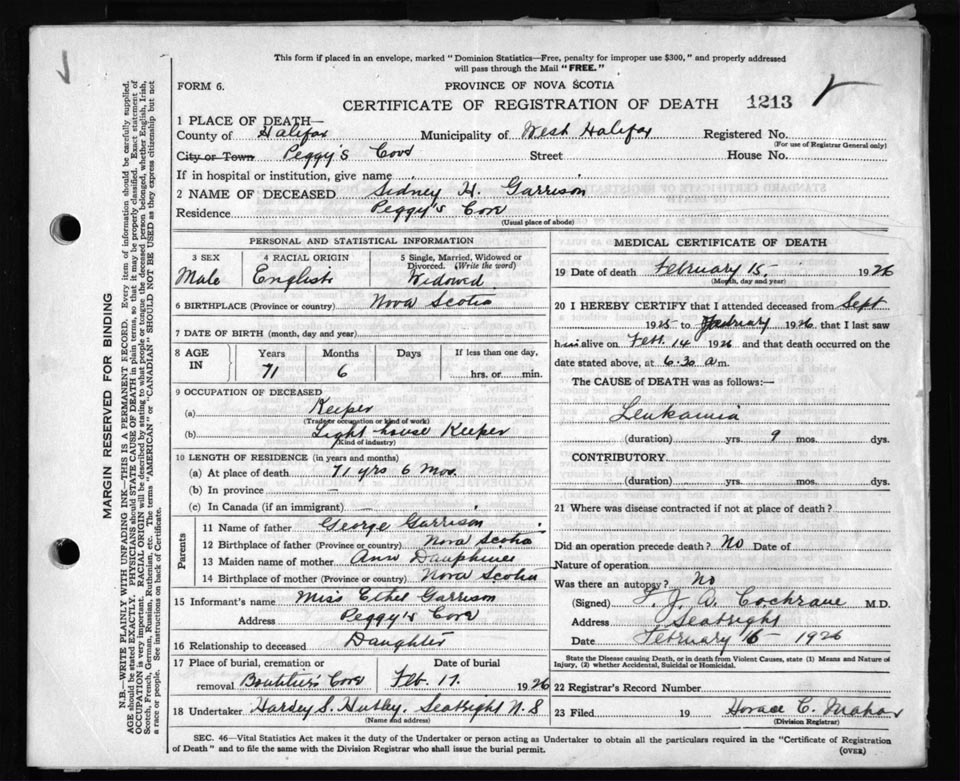 This form if placed in an envelope, marked "Dominion Statistics—Free, penalty for improper use $300," and properly addressed
will pass through the Mail "FREE."
FORM 6.
PROVINCE OF NOVA SCOTIA
CERTIFICATE OF REGISTRATION OF DEATH 1213
1 PLACE OF DEATH—
County of Halifax Municipality of West Halifax Registered No.
(For use of Registrar General only)
City or Town Peggy's Cove Street House No.
If in hospital or institution, give name
2 NAME OF DECEASED Sidney H. Garrison
Residence Peggy's Cove
(Usual place of abode)
PERSONAL AND STATISTICAL INFORMATION
3 SEX 4 RACIAL ORIGIN 5 Single, Married, Widowed or
Divorced. (Write the word)
Male English Widowed
6 BIRTHPLACE (Province or country) Nova Scotia
7 DATE OF BIRTH (month, day and year)
8 AGE IN Years Months Days If less than one day,
71 6 hrs. or min.
9 OCCUPATION OF DECEASED
(a) Keeper
(Trade or occupation or kind of work)
(b) Light-house Keeper
(Kind of industry)
10 LENGTH OF RESIDENCE (in years and months)
(a) At place of death 71 yrs 6 mos.
(b) In province —
(c) In Canada (if an immigrant)
Parents
11 Name of father George Garrison
12 Birthplace of father (Province or country) Nova Scotia
13 Maiden name of mother Ann Dauphinee
14 Birthplace of mother (Province or country) Nova Scotia
15 Informant's name Miss Ethel Garrison
Address Peggy's Cove
16 Relationship to deceased Daughter
17 Place of burial, cremation or Date of burial
removal Boutilier's Cove Feb. 17. 1926
18 Undertaker Seabright N.S
(Name and address)
MEDICAL CERTIFICATE OF DEATH
19 Date of death February 15, 1926
(Month, day and year)
20 I HEREBY CERTIFY that I attended deceased from Sept
1925 to February 1926, that I last saw
him alive on Feb. 14 1926 and that death occurred on the
date stated above, at 6.30 a m.
The CAUSE OF DEATH was as follows:—
Leukamia
(duration) yrs. 9 mos. dys.
CONTRIBUTORY
(duration) yrs. mos. dys.
21 Where was disease contracted if not at place of death?
Did an operation precede death? No Date of
Nature of operation
Was there an autopsy? No
(Signed) J. A. Cochrane M.D.
Address Seabright
Date February 16 - 1926
State the Disease causing Death, or in death from Violent Causes, state (1) Means and Nature of
Injury, (2) whether Accidental, Suicidal or Homicidal.
22 Registrar's Record Number
23 Filed 19 Horace C.
(Division Registrar)
SEC. 46—Vital Statistics Act makes it the duty of the Undertaker or person acting as Undertaker to obtain all the particulars required in the "Certificate of Registration
of Death" and to file the same with the Division Registrar who shall issue the burial permit.
(OVER)
MARGIN RESERVED FOR BINDING
N.B.—WRITE PLAINLY WITH UNFADING INK—THIS IS A PERMANENT RECORD. Every item of information should be carefully supplied.
AGE should be stated EXACTLY. PHYSICIANS should STATE CAUSE OF DEATH in plain terms, so that it may be properly classified. Exact statement of
OCCUPATION is very important. RACIAL ORIGIN will be described by stating to what people or tongue the deceased person belonged, whether English, Irish,
Scotch, French, German, Russian, Ruthenian, etc. The terms "AMERICAN" or "CANADIAN" SHOULD NOT BE USED as they express citizenship but not
a race or people. See instructions on back of Certificate.